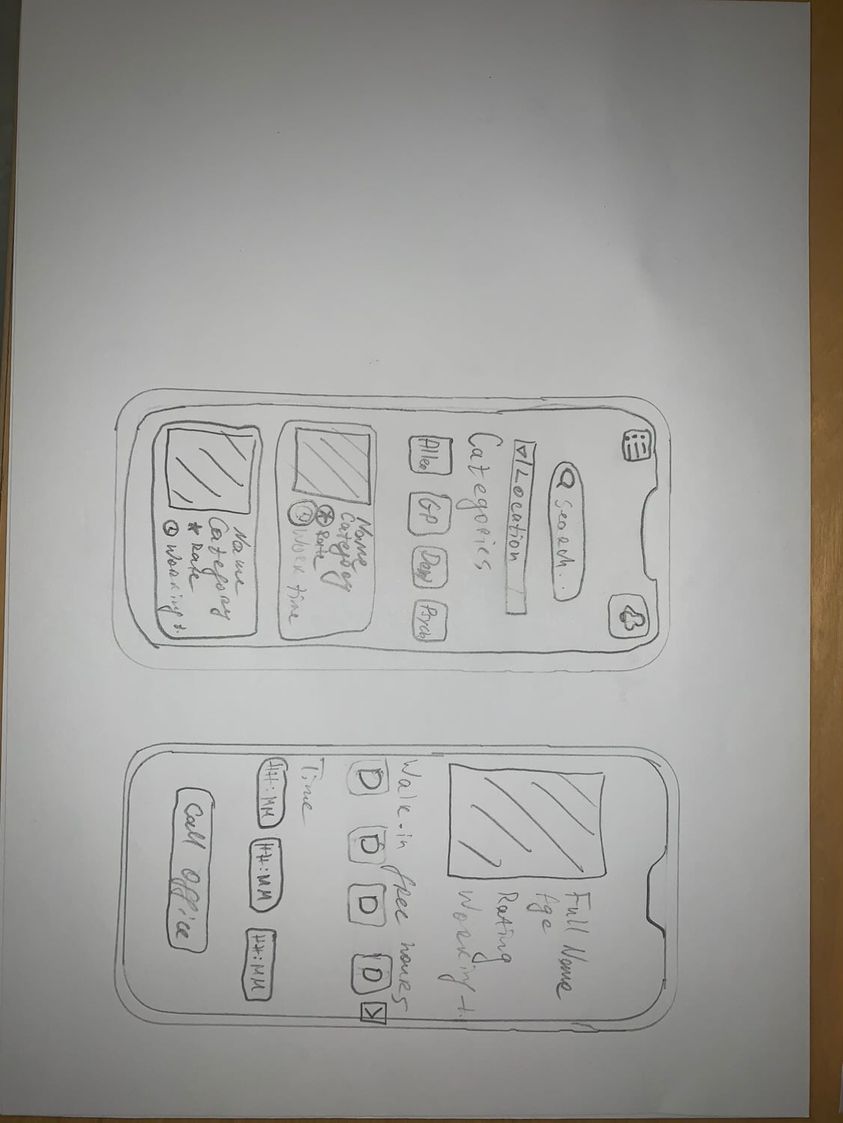 Search...
Location
Categories
Aller GP Derm Psych
Name
Category
Rate
Work time
Name
Category
* Rate
Working t.
Full Name
Age
Rating
Working t.
Walk-in free hours
D D D D
Time
HH:MM HH:MM HH:MM
Call Office